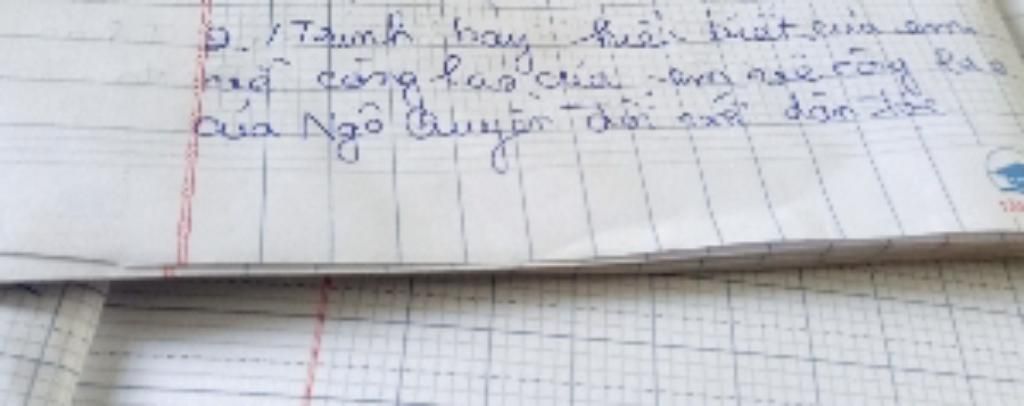 2. / Trình bày hiểu biết của em
về công lao của em về công lao
của Ngô Quyền đối với dân tộc